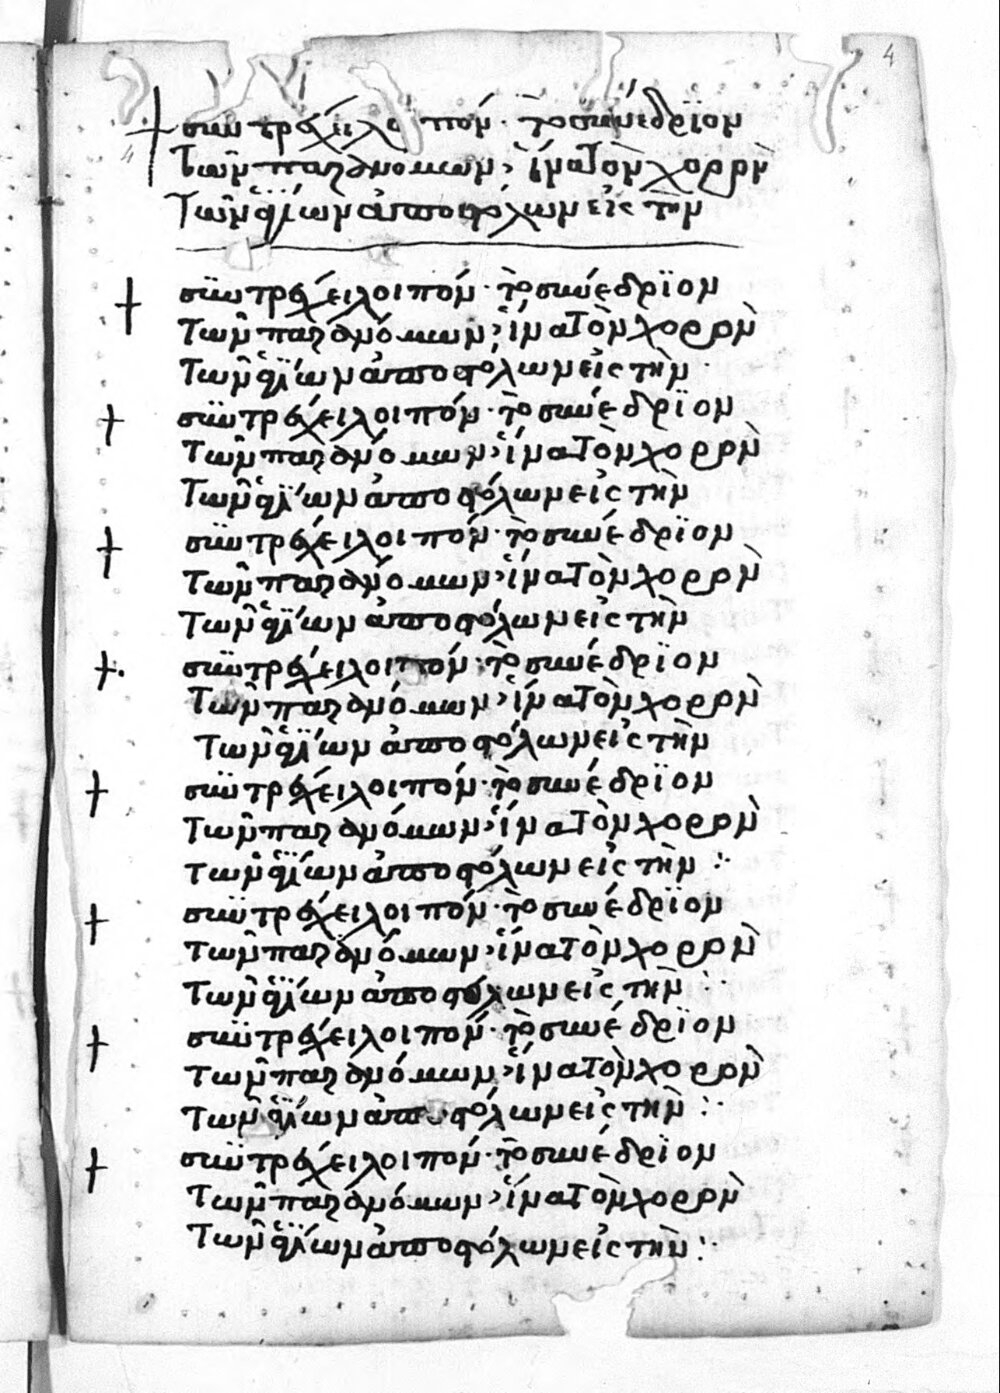 4
† συντρέχει λοιπόν· τὸ συνέδρϊον
4
τῶν παρανόμων, ἵνα τὸν χορὸν
τῶν ἁγΐων ἀποστόλων εἰς τὴν
† συντρέχει λοιπόν· τὸ συνέδρϊον
τῶν παρανόμων, ἵνα τὸν χορὸν
τῶν ἁγΐων ἀποστόλων εἰς τὴν
† συντρέχει λοιπόν· τὸ συνέδρϊον
τῶν παρανόμων, ἵνα τὸν χορὸν
τῶν ἁγΐων ἀποστόλων εἰς τὴν
† συντρέχει λοιπόν· τὸ συνέδρϊον
τῶν παρανόμων, ἵνα τὸν χορὸν
τῶν ἁγΐων ἀποστόλων εἰς τὴν
†. συντρέχει λοιπόν· τὸ συνέδρϊον
τῶν παρανόμων, ἵνα τὸν χορὸν
τῶν ἁγΐων ἀποστόλων εἰς τὴν
† συντρέχει λοιπόν· τὸ συνέδρϊον
τῶν παρανόμων, ἵνα τὸν χορὸν
τῶν ἁγΐων ἀποστόλων εἰς τὴν :·
† συντρέχει λοιπόν· τὸ συνέδρϊον
τῶν παρανόμων, ἵνα τὸν χορὸν
τῶν ἁγΐων ἀποστόλων εἰς τὴν :·
† συντρέχει λοιπόν· τὸ συνέδρϊον
τῶν παρανόμων, ἵνα τὸν χορὸν
τῶν ἁγΐων ἀποστόλων εἰς τὴν :·
† συντρέχει λοιπόν· τὸ συνέδρϊον
τῶν παρανόμων, ἵνα τὸν χορὸν
τῶν ἁγΐων ἀποστόλων εἰς τὴν :·